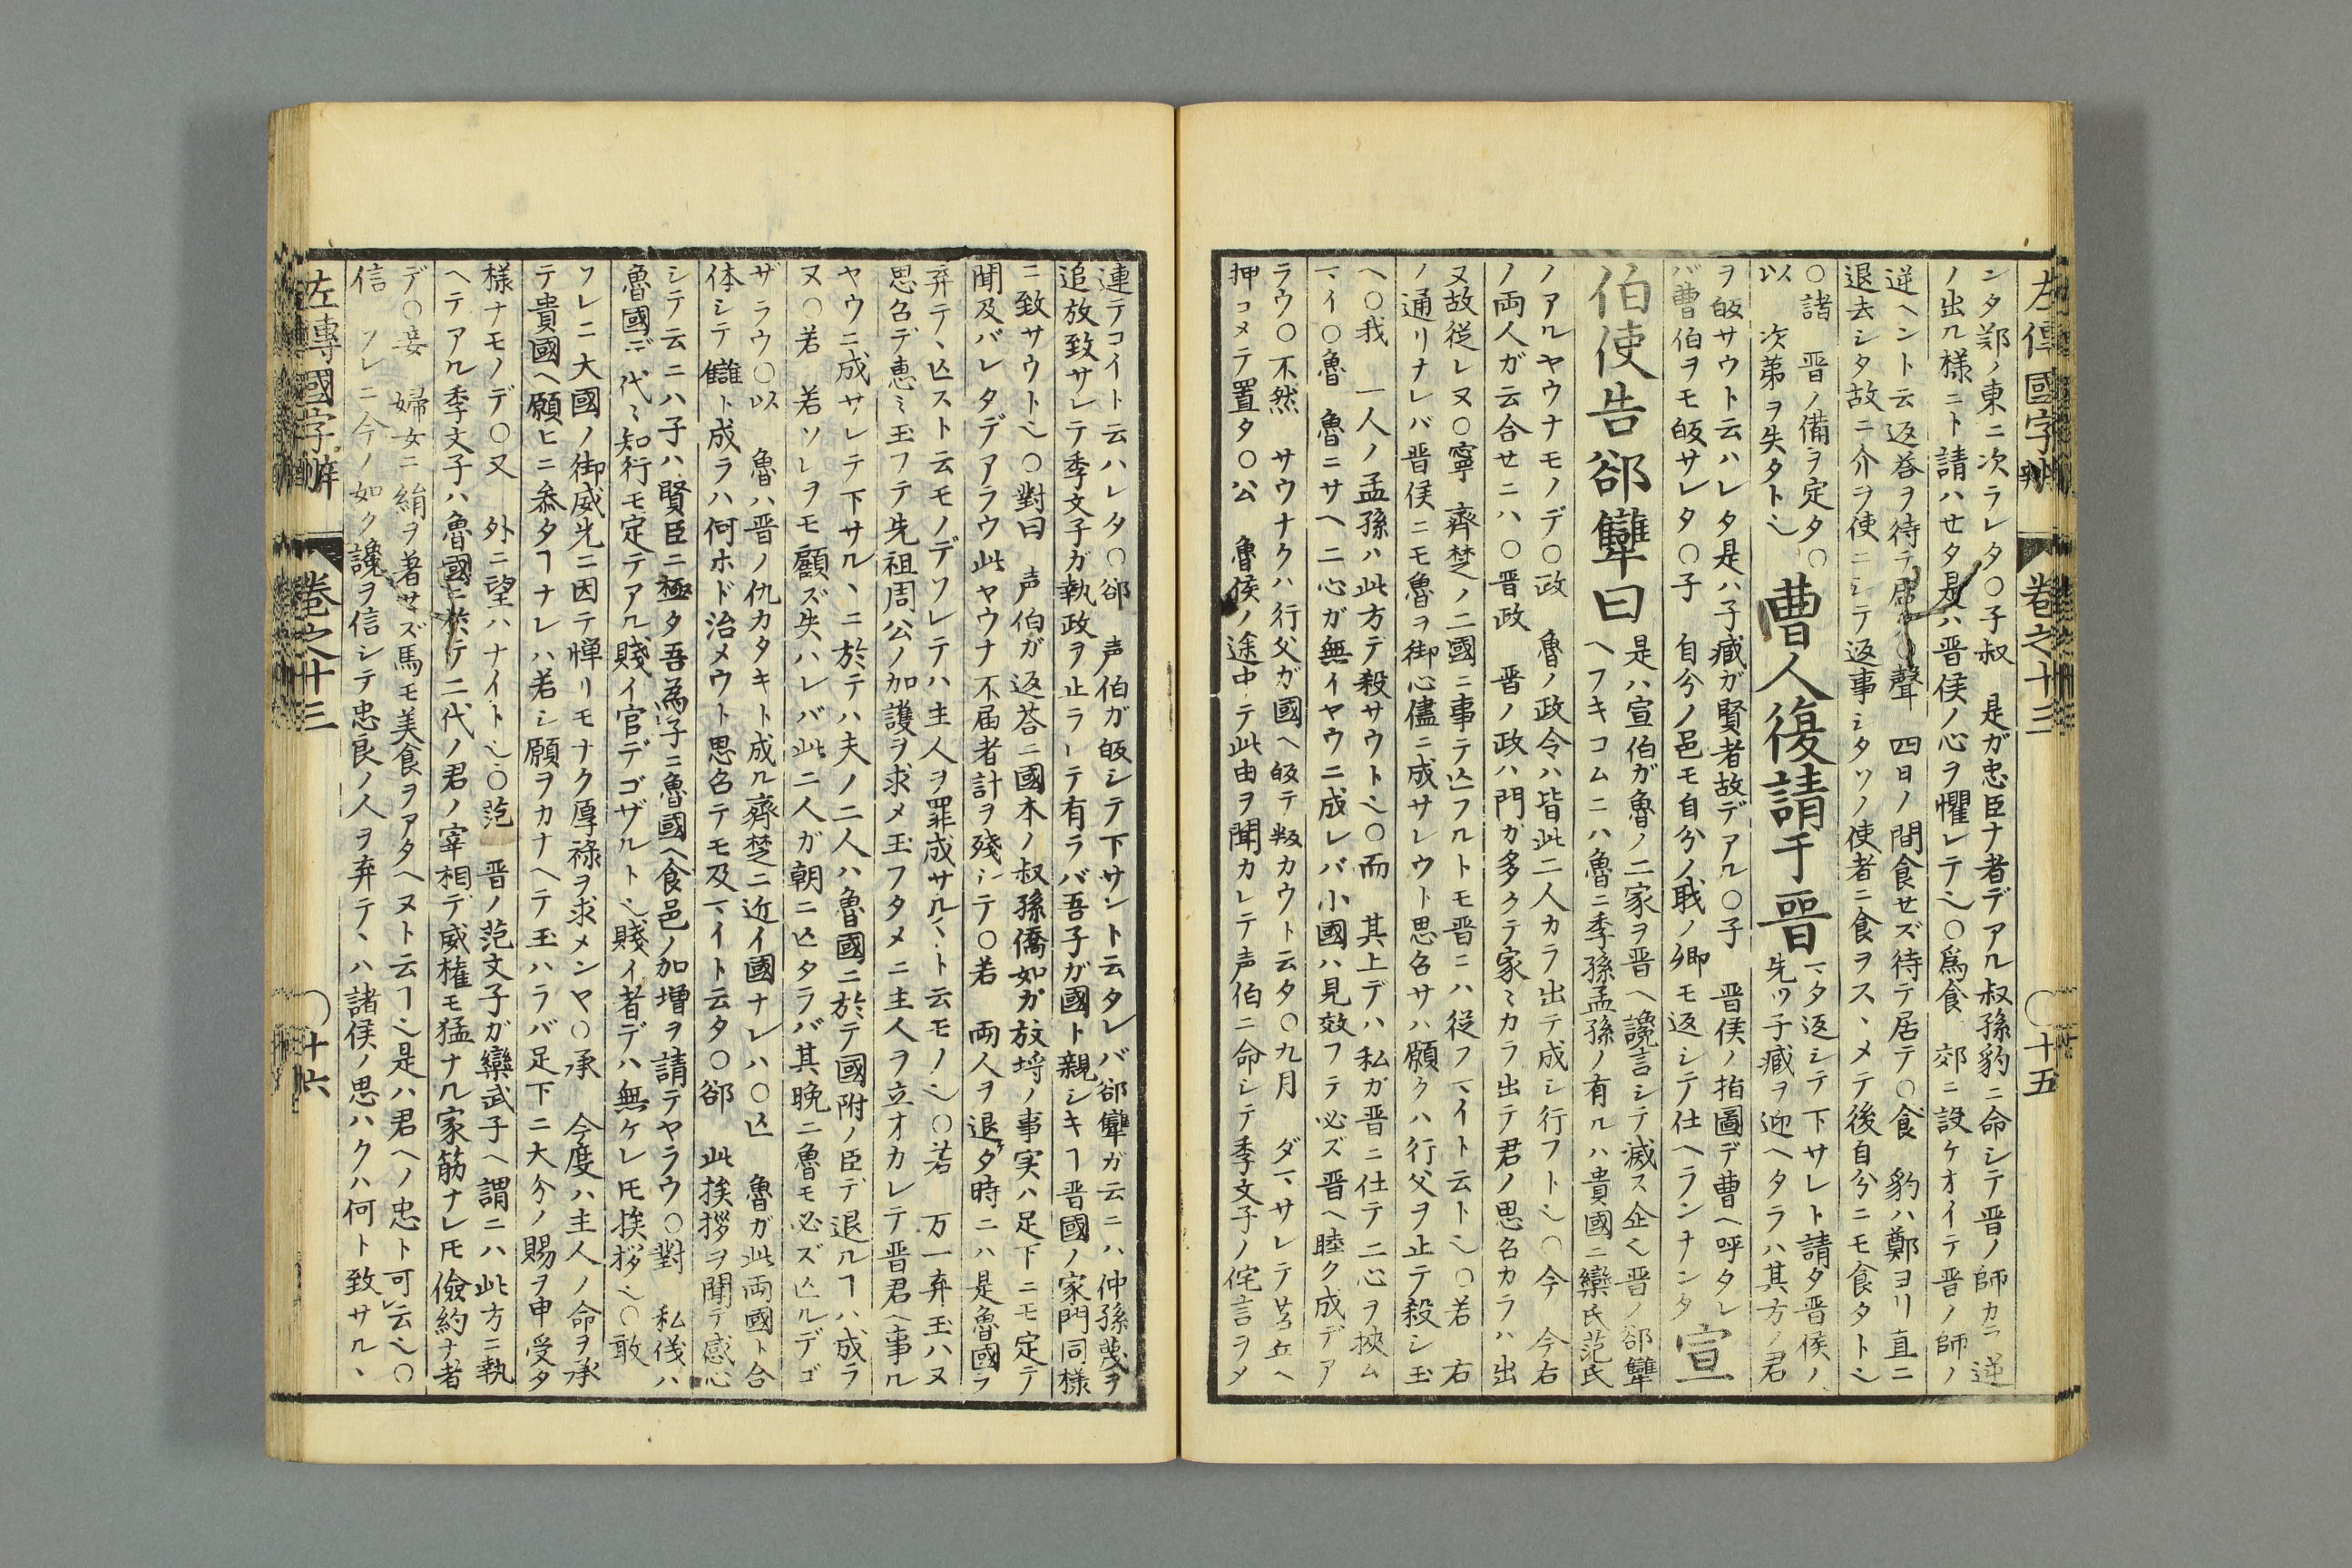 左傳國字辨 卷之十三 〇十五
ンタ鄭ノ東ニ次ラレタ〇子叔 是ガ忠臣ナ者デアル叔孫豹ニ命シテ晋ノ師カラ逆
ノ出ル様ニト請ハせタ是ハ晋侯ノ心ヲ懼レテ也〇爲食 郊ニ設ケオイテ晋ノ師ノ
逆ヘント云返答ヲ待テ居タ〇聲 四日ノ間食せズ待テ居テ〇食 豹ハ鄭ヨリ直ニ
退去シタ故ニ介ヲ使ニシテ返事シタソノ使者ニ食ヲスヽメテ後自分ニモ食タト也
〇諸 晋ノ備ヲ定タ〇
以 次第ヲ失タト也
曹人復請于晋
マタ返シテ下サレト請タ晋侯ノ
先ツ子臧ヲ迎ヘタラハ其方ノ君
ヲ皈サウト云ハレタ是ハ子臧ガ賢者故デアル〇子 晋侯ノ指圖デ曹ヘ呼タレ
バ曹伯ヲモ皈サレタ〇子 自分ノ邑モ自分ノ職ノ卿モ返シテ仕ヘランナンタ
宣
伯使告郤犨曰
是ハ宣伯ガ魯ノ二家ヲ晋ヘ讒言シテ滅ス企也晋ノ郤犨
ヘフキコムニハ魯ニ季孫孟孫ノ有ルハ貴國ニ欒氏范氏
ノアルヤウナモノデ〇政 魯ノ政令ハ皆此二人カラ出テ成シ行フト也〇今 今右
ノ両人ガ云合せニハ〇晋政 晋ノ政ハ門ガ多クテ家ミカラ出テ君ノ思召カラハ出
ヌ故従レヌ〇寧 齊楚ノ二國ニ事テ亡フルトモ晋ニハ従フマイト云ト也〇若 右
ノ通リナレバ晋侯ニモ魯ヲ御心儘ニ成サレウト思召サハ願クハ行父ヲ止テ殺シ玉
ヘ〇我 一人ノ孟孫ハ此方テ殺サウト也〇而 其上デハ私ガ晋ニ仕テ二心ヲ挾ム
マイ〇魯 魯ニサヘ二心ガ無イヤウニ成レバ小國ハ見效フテ必ズ晋ヘ睦ク成デア
ラウ〇不然 サウナクハ行父ガ國ヘ皈テ叛カウト云タ〇九月 ダマサレテ苕丘ヘ
押コメテ置タ〇公 魯侯ノ途中テ此由ヲ聞カレテ声伯ニ命シテ季文子ノ侘言ヲメ
連テコイト云ハレタ〇郤 声伯ガ皈シテ下サント云タレバ郤犨ガ云ニハ仲孫蔑ヲ
追放致サレテ季文子ガ執政ヲ止ラレテ有ラバ吾子ガ國ト親シキヿ晋國ノ家門同様
ニ致サウト也〇對曰 声伯ガ返荅ニ國本ノ叔孫僑如ガ放埓ノ事実ハ足下ニモ定テ
聞及バレタデアラウ此ヤウナ不届者計ヲ殘シテ〇若 両人ヲ退タ時ニハ是魯國ヲ
弃テヽ亡スト云モノデソレテハ主人ヲ罪成サルヽト云モノ也〇若 万一弃玉ハヌ
思召デ恵ミ玉フテ先祖周公ノ加護ヲ求メ玉フタメニ主人ヲ立オカレテ晋君ヘ事ル
ヤウニ成サレテ下サルヽニ於テハ夫ノ二人ハ魯國ニ於テ國附ノ臣デ退ルヿハ成ラ
ヌ〇若 若ソレヲモ顧ズ失ハレバ此二人ガ朝ニ亡タラバ其晩ニ魯モ必ズ亡ルデゴ
ザラウ〇以 魯ハ晋ノ仇カタキト成ル齊楚ニ近イ國ナレハ〇亡 魯ガ此両國ト合
体シテ讎ト成ラハ何ホド治メウト思召テモ及マイト云タ〇郤 此挨拶ヲ聞テ感心
シテ云ニハ子ハ賢臣ニ極タ吾為子ニ魯國ヘ食邑ノ加増ヲ請テヤラウ〇對 私儀ハ
魯國デ代ミ知行モ定テアル賤イ官デゴザルト也賤イ者デハ無ケレ𪜈挨拶也〇敢
ソレニ大國ノ御威光ニ因テ憚リモナク厚祿ヲ求メンヤ〇承 今度ハ主人ノ命ヲ承
テ貴國ヘ願ヒニ参タヿナレハ若シ願ヲカナヘテ玉ハラバ足下ニ大分ノ賜ヲ申受タ
様ナモノデ〇又 外ニ望ハナイト也〇范 晋ノ范文子ガ欒武子ヘ謂ニハ此方ニ執
ヘテアル季文子ハ魯國ニ於テ二代ノ君ノ宰相デ威権モ猛ナル家筋ナレ𪜈儉約ナ者
デ〇妾 婦女ニ絹ヲ著せズ馬モ美食ヲアタヘヌト云ヿ也是ハ君ヘノ忠ト可云也〇
信 ソレニ今ノ如ク讒ヲ信シテ忠良ノ人ヲ弃テヽハ諸侯ノ思ハクハ何ト致サルヽ
左傳國字辨 卷之十三 〇十六